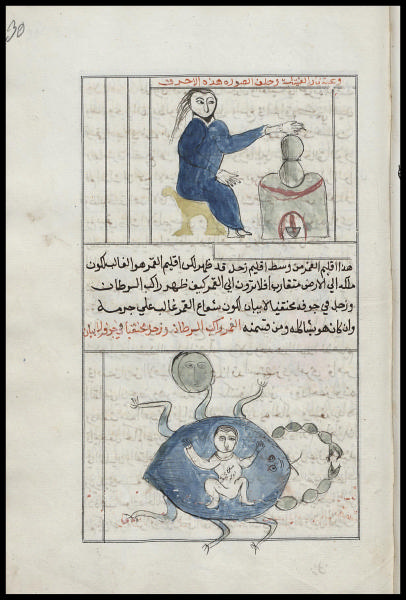 30
وعند باب القينات زحل في الصورة هذه الاحرف
هذا اقليم القمر من وسط اقليم زحل قد ظهر لكن اقليم القمر هو الغالب لكون
ملكه الي الارض متقارب افلا ترون الي القمر كيف ظهر راكب السرطان
وزحل في جوفه مختفيا لا يبان لكون شعاع القمر غالب علي جرمه
وان كان هو يشاكله ومن قسمه القمر راكب السرطان وزحل مختفيا في جوفه لا يبان